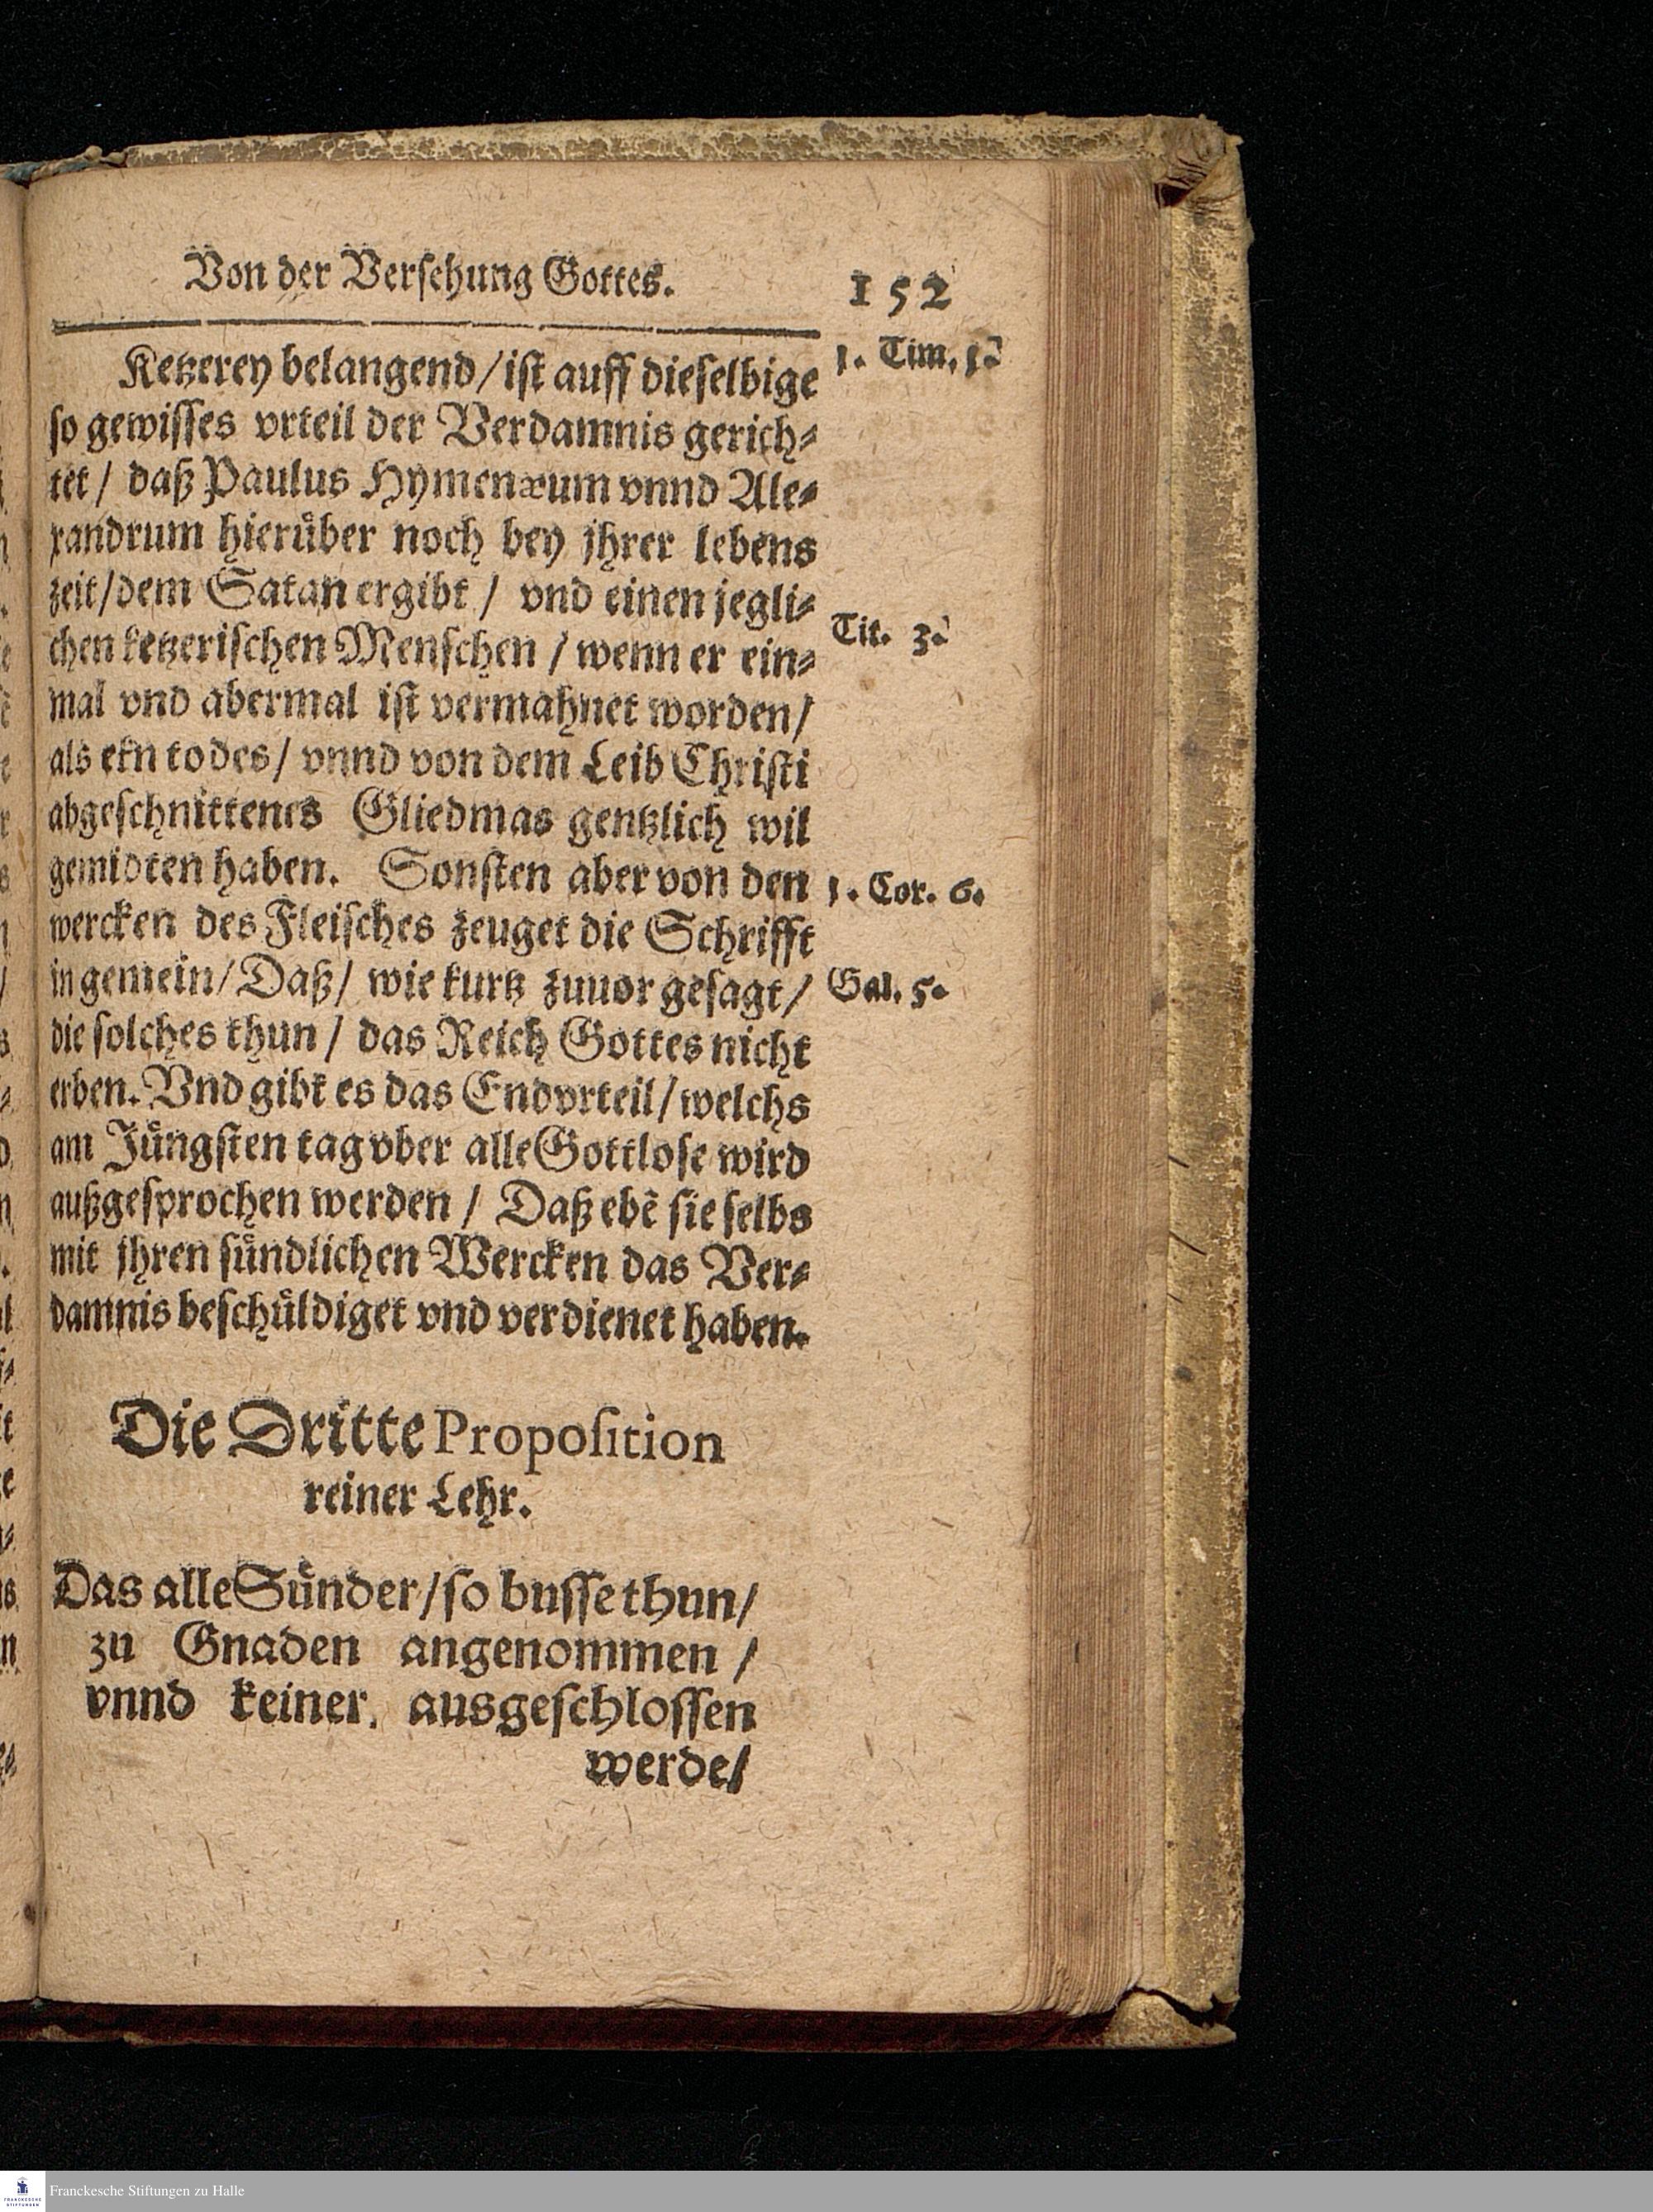 Von der Versehung Gottes.
152
Ketzerey belangend/ ist auff dieselbige
1. Tim. 1.
so gewisses vrteil der Verdamnis gerich⸗
tet / daß Paulus Hymenæum vnnd Ale⸗
xandrum hierüber noch bey jhrer lebens
zeit/dem Satan ergibt / vnd einen jegli⸗
chen ketzerischen Menschen / wenn er ein⸗
Tit. 3.
mal vnd abermal ist vermahnet worden/
als ein todes/ vnnd von dem Leib Christi
abgeschnittenes Gliedmas gentzlich wil
gemidten haben. Sonsten aber von den
1. Cor. 6.
wercken des Fleisches zeuget die Schrifft
in gemein/ Daß/ wie kurtz zuuor gesagt/
Gal. 5.
die solches thun / das Reich Gottes nicht
erben. Vnd gibt es das Endvrteil/ welchs
am Jüngsten tag vber alle Gottlose wird
außgesprochen werden / Daß ebẽ sie selbs
mit jhren sündlichen Wercken das Ver⸗
damnis beschüldiget vnd verdienet haben.
Die Dritte Proposition
reiner Lehr.
Das alle Sünder/ so busse thun/
zu Gnaden angenommen /
vnnd keiner. ausgeschlossen
werde/
FRANCKESCHE STIFTUNGEN
Franckesche Stiftungen zu Halle